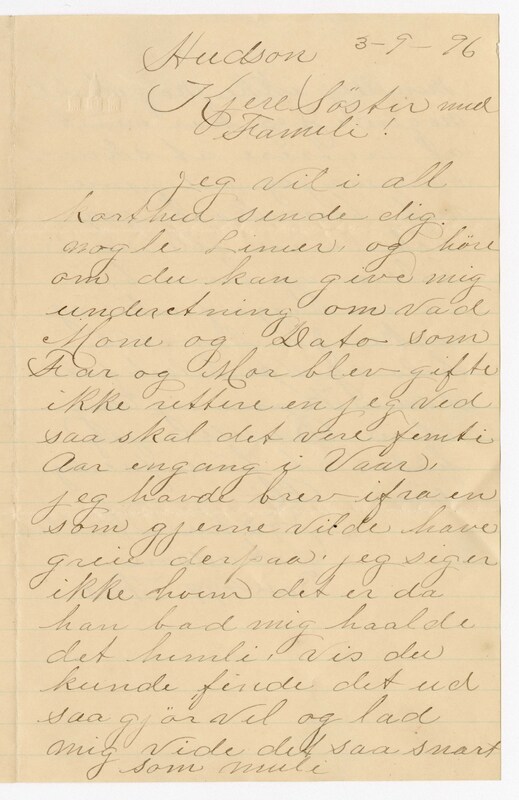 Hudson 3-9-96
Kjere Söstir med
Fameli!
jeg vil i all
korthed sende dig
nogle Linier, og höre
om du kan give mig
underetning om vad
Mone og Dato som
Far og Mor blev gifte
ikke rettere en jeg ved
saa skal det vere femti
Aar engang i Vaar,
jeg havde brev ifra en
som gjerne vilde have
greie derpaa, jeg siger
ikke hvem det er da
han bad mig haalde
det hemli, vis du
kunde finde det ud
saa gjör vel og lad
mig vide det saa snart
som muli